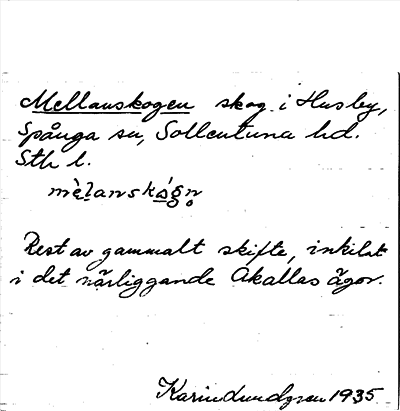 Mellanskogen skog i Husby,
Spånga sn, Sollentuna hd.
Sth l.
mèlanskógn̥
Rest av gammalt skifte, inkilat
i det närliggande Akallas ägor.
Karin Lundgren 1935